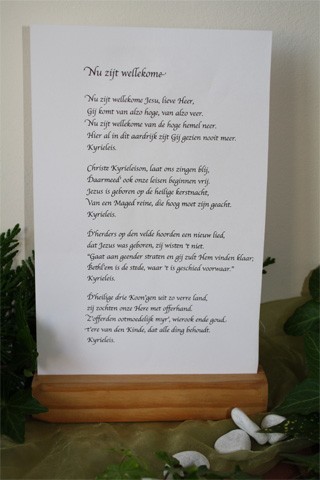 Nu zijt wellekome
Nu zijt wellekome Jesu, lieve Heer,
Gij komt van alzo hoge, van alzo veer.
Nu zijt wellekome van de hoge hemel neer.
Hier al in dit aardrijk zijt Gij gezien nooit meer.
Kyrieleis.
Christe Kyrieleison, laat ons zingen blij,
Daarmeed' ook onze leisen beginnen vrij.
Jezus is geboren op de heilige kerstnacht,
Van een Maged reine, die hoog moet zijn geacht.
Kyrieleis.
D'herders op den velde hoorden een nieuw lied,
dat Jezus was geboren, zij wisten 't niet.
"Gaat aan geender straten en gij zult Hem vinden klaar;
Bethl'em is de stede, waar 't is geschied voorwaar."
Kyrieleis.
D'heilige drie Koon'gen uit zo verre land,
zij zochten onze Here met offerhand.
Z'offerden ootmoedelijk myr', wierook ende goud,
t'ere van den Kinde, dat alle ding behoudt.
Kyrieleis.